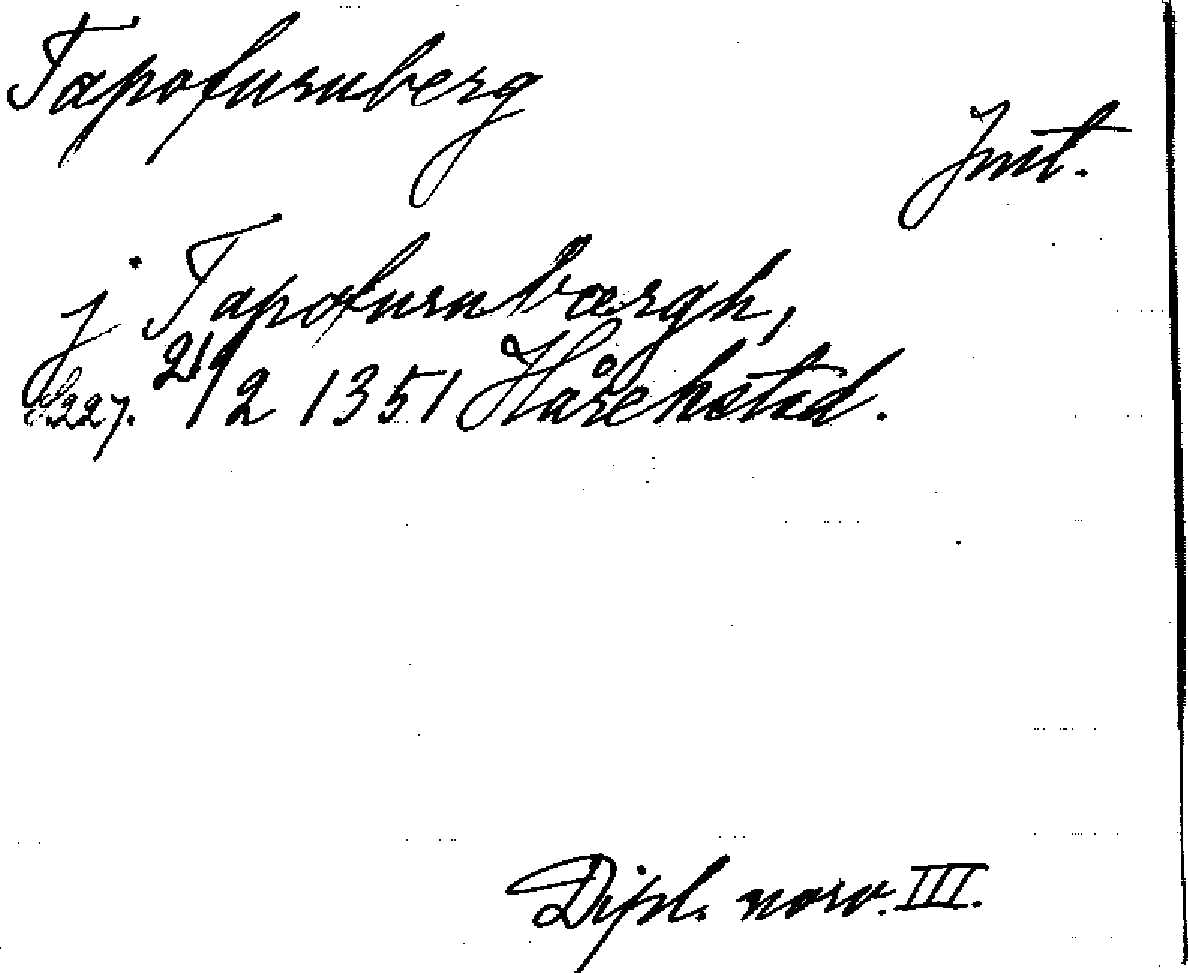 Tapofurnberg
Jmt.
j Tapofurnbærgh,
S. 227. 21/2 1351 Hårekstad.
Dipl. norv. III.